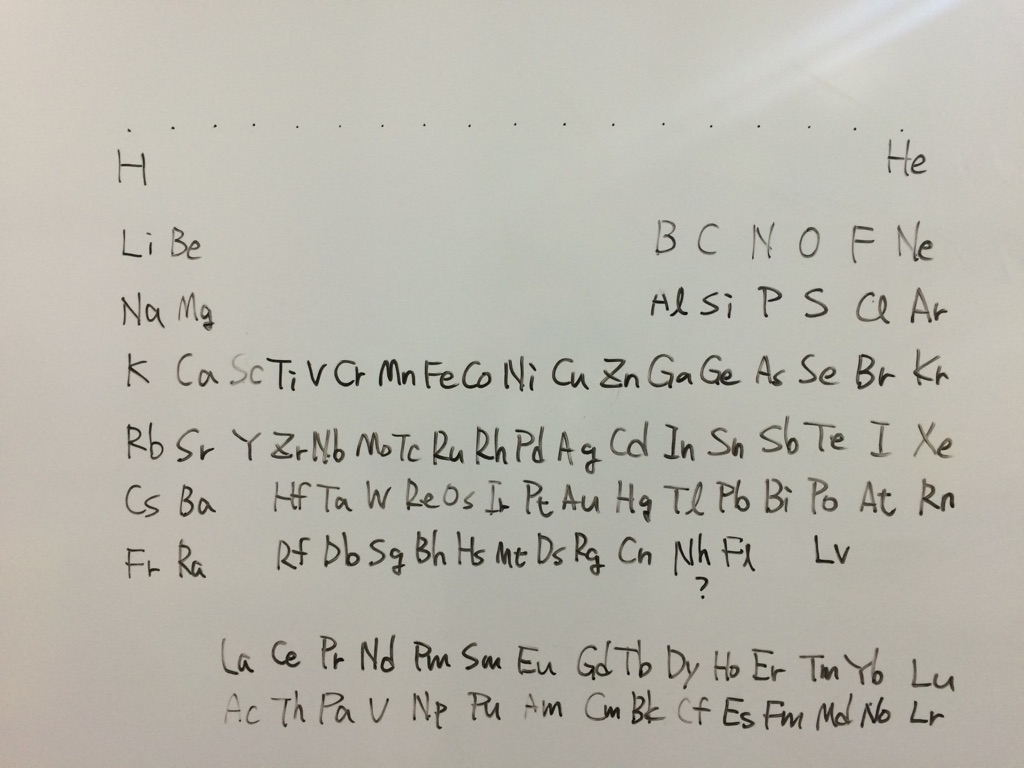 H He
Li Be B C N O F Ne
Na Mg Al Si P S Cl Ar
K Ca Sc Ti V Cr Mn Fe Co Ni Cu Zn Ga Ge As Se Br Kr
Rb Sr Y Zr Nb Mo Tc Ru Rh Pd Ag Cd In Sn Sb Te I Xe
Cs Ba Hf Ta W Re Os Ir Pt Au Hg Tl Pb Bi Po At Rn
Fr Ra Rf Db Sg Bh Hs Mt Ds Rg Cn Nh Fl Lv
?
La Ce Pr Nd Pm Sm Eu Gd Tb Dy Ho Er Tm Yb Lu
Ac Th Pa U Np Pu Am Cm Bk Cf Es Fm Md No Lr